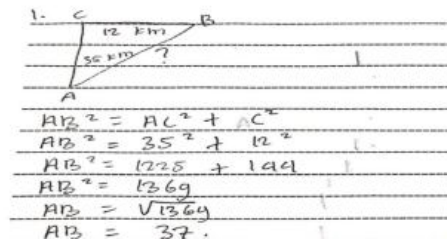 1. C B
12 km
35 km ?
A
AB² = AC² + C²
AB² = 35² + 12²
AB² = 1225 + 144
AB² = 1369
AB = √1369
AB = 37.